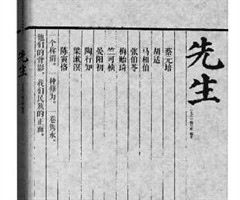 先生
蔡元培
胡适
马相伯
张伯苓
梅贻琦
竺可桢
晏阳初
陶行知
梁漱溟
陈寅恪
一个称谓，一种修为，
他们的背影，我们民族的正面。
先生